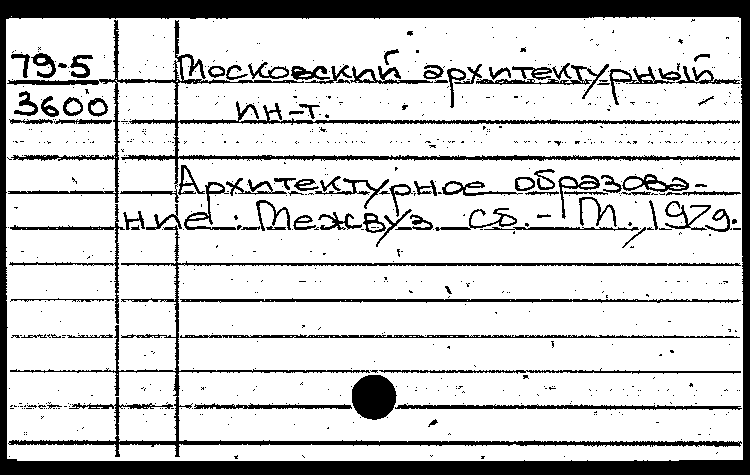 79-5 Московский архитектурный
3600 ин-т.
Архитектурное образова-
ние : Межвуз. сб. - М., 1979.